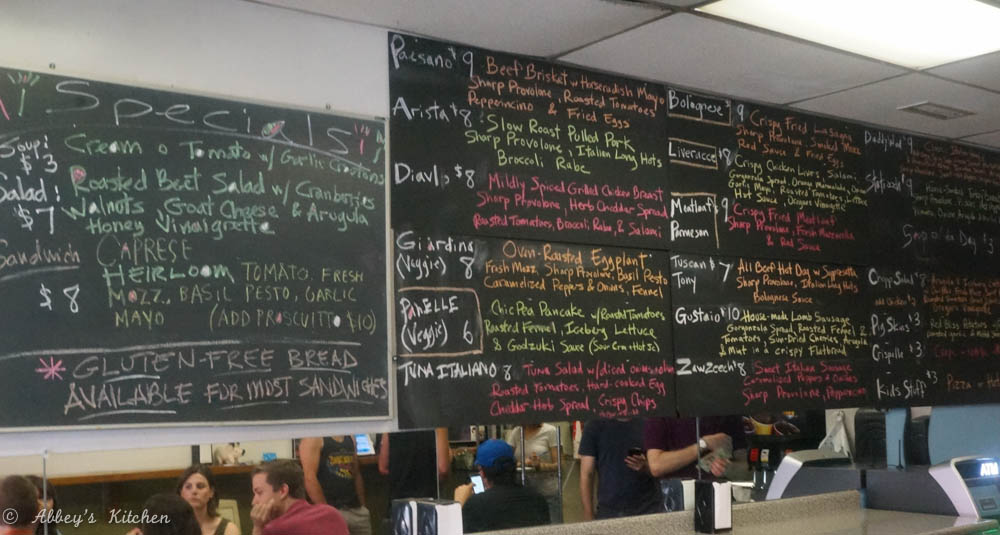 Specials
Soup!
$3
Cream o Tomato w/ Garlic Croutons
Salad!
$7
Roasted Beet Salad w/ Cranberries
Walnuts Goat Cheese & Arugula
Honey Vinaigrette
Sandwich
$8
CAPRESE
HEIRLOOM TOMATO, FRESH
MOZZ, BASIL PESTO, GARLIC
MAYO (ADD PROSCUITTO $10)
GLUTEN-FREE BREAD
AVAILABLE FOR MOST SANDWICHES
Paisano $9
Beef Brisket w Horseradish Mayo
Sharp Provolone, Roasted Tomatoes
Pepperoncino & Fried Eggs
Arista $8
Slow Roast Pulled Pork
Sharp Provolone, Italian Long Hots
Broccoli Rabe
Diavlo $8
Mildly Spiced Grilled Chicken Breast
Sharp Provolone, Herb Cheddar Spread
Roasted Tomatoes, Broccoli Rabe, & Salami
Giardino
(Veggie) 8
Oven-Roasted Eggplant
Fresh Mozz, Sharp Provolone, Basil Pesto
Caramelized Peppers & Onions, Fennel
PANELLE
(Veggie) 6
ChicPea Pancake w/ Roasted Tomatoes
Roasted Fennel, Iceberg Lettuce
& Godzuki Sauce
TUNA ITALIANO 8
Tuna Salad w/ diced onions,
Roasted Tomatoes, Hard-cooked Egg
Cheddar Herb Spread, Crispy Chips
Bolognese $9
Crispy Fried Lasagna
Sharp Provolone, Smoked Mozz
Red Sauce & Fried Eggs
Liveracce $8
Crispy Chicken Livers, Salami
Gorgonzola Spread, Orange Marmalade,
Roasted Tomatoes, Lettuce
Hot Sauce, Oregano Vinaigrette
Meatloaf $9
Parmesan
Crispy Fried Meatloaf
Sharp Provolone, Fresh Mozzarella
& Red Sauce
Tuscan $7
Tony
All Beef Hot Dog w/ Suppresatta
Sharp Provolone, Italian Long Hots
Bolognese Sauce
Gustaio $10
House-made Lamb Sausage
Gorgonzola Spread, Roasted Fennel &
Tomatoes, Sun-Dried Cherries, Arugula
& Mint in a crispy Flatbread
Zawzeech $8
Sweet Italian Sausage
Caramelized Peppers & Onions
Sharp Provolone, Pepperoncino
Soup of da Day $3
Pig Skins $3
Crispelle $3
Kids Stuff $3
Pizza
ATM
© Abbey's Kitchen